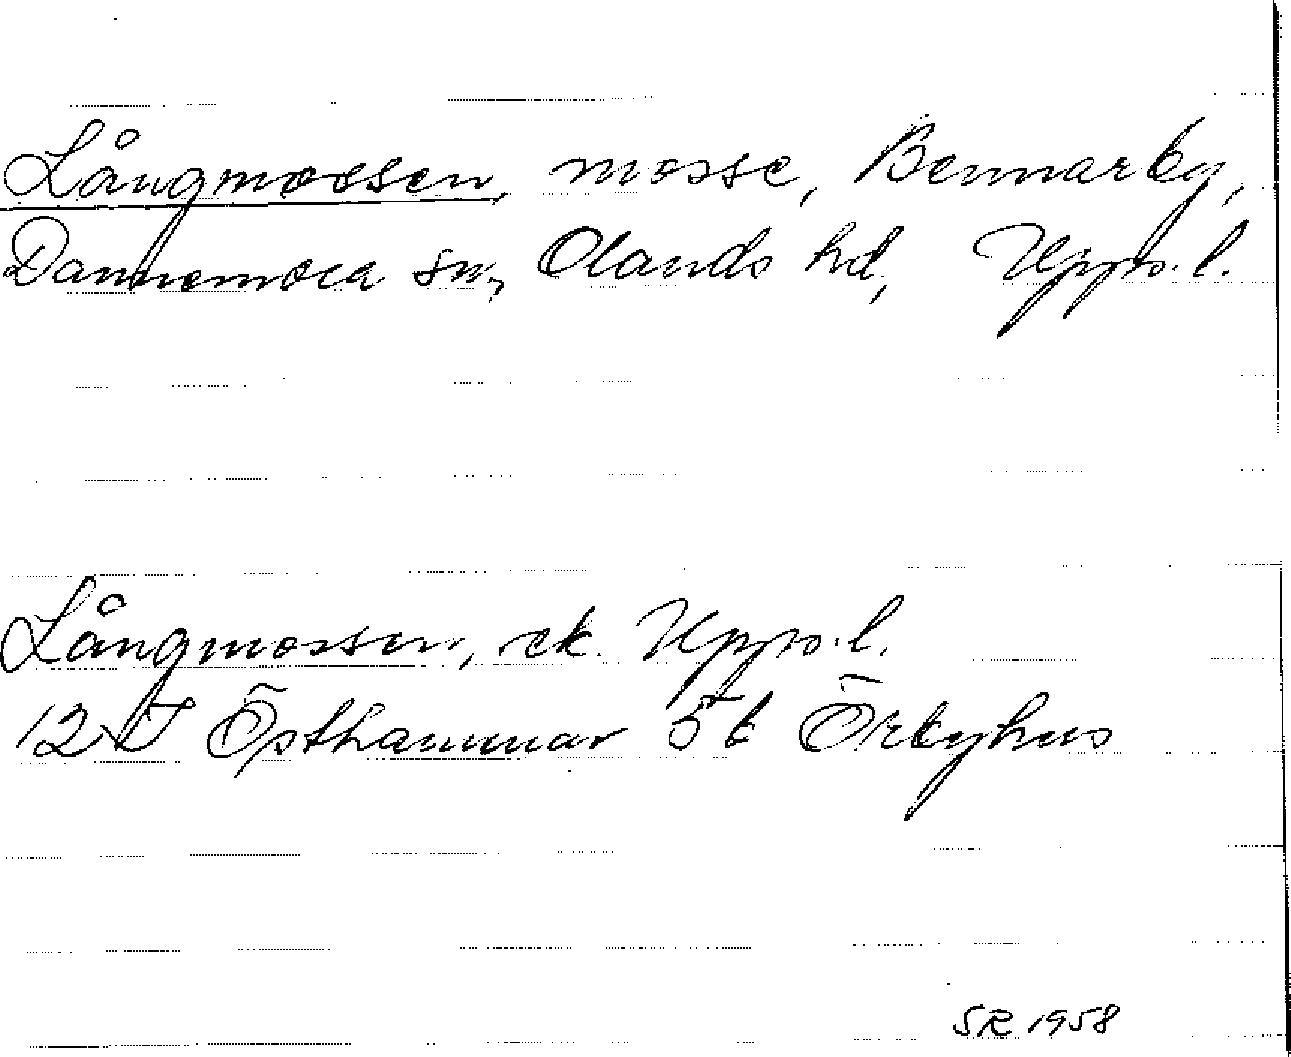 Långmossen, mosse, Bennarby,
Dannemora sn, Olands hd, Upps. l.
Långmossen, ek. Upps. l.
12 I Östhammar 5 b Örbyhus
SR 1958